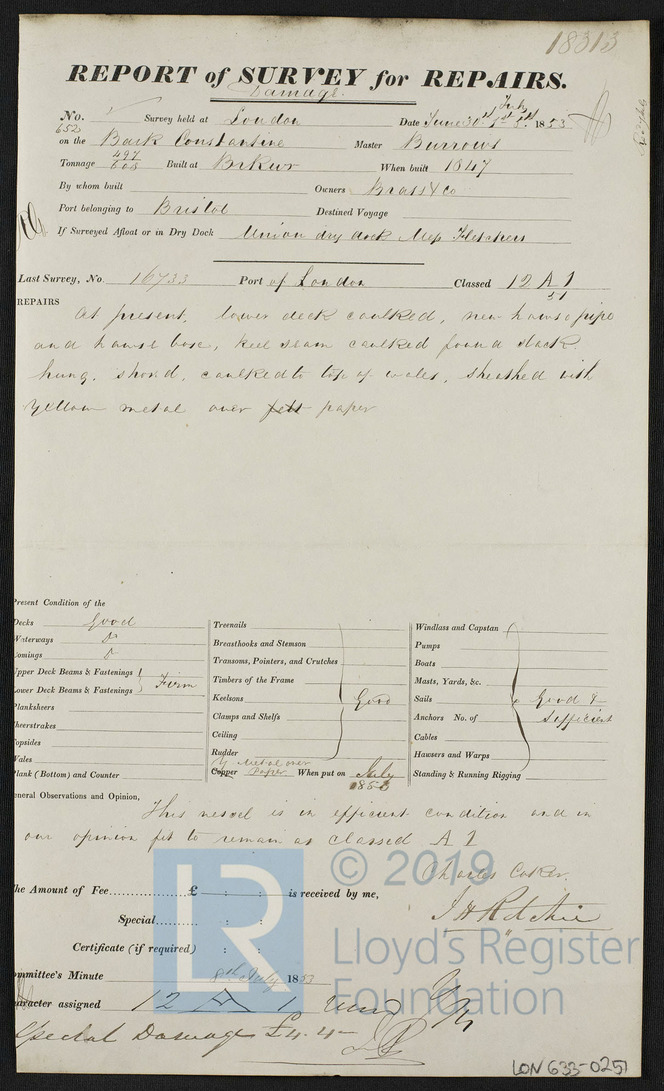 18313
REPORT of SURVEY for REPAIRS.
Damage.
No. 652 Survey held at London Date June 30th July 1st 5th 1853
on the Bark Constantine Master Burrows
Tonnage 497 608 Built at Brkwr When built 1847
By whom built Owners Brass & Co
Port belonging to Bristol Destined Voyage
If Surveyed Afloat or in Dry Dock Union dry dock Mess Fletchers
Last Survey, No. 16733 Port of London Classed 12 A 1
51
REPAIRS
At present, lower deck caulked, new hawse pipe
and hawse bose, keel seam caulked found slack
hung, shored, caulked to top of wales, sheathed with
yellow metal over felt paper
Present Condition of the
Decks Good
Waterways Do
Comings Do
Upper Deck Beams & Fastenings
Lower Deck Beams & Fastenings Firm
Planksheers
Sheerstrakes
Topsides
Wales
Plank (Bottom) and Counter
Treenails
Breasthooks and Stemson
Transoms, Pointers, and Crutches
Timbers of the Frame
Keelsons Good
Clamps and Shelfs
Ceiling
Rudder
Y Metal over
Copper Paper When put on July
1853
Windlass and Capstan
Pumps
Boats
Masts, Yards, &c.
Sails Good &
Anchors No. of Sufficient
Cables
Hawsers and Warps
Standing & Running Rigging
General Observations and Opinion,
This vessel is in efficient condition and in
our opinion fit to remain as classed A 1
Charles Coker.
J H Ritchie
The Amount of Fee £ : : is received by me,
Special : :
Certificate (if required) : :
Committee's Minute 8th July 1853
Character assigned 12 A 1
Special Damage £4.4
LR
© 2019
Lloyd's Register
Foundation
LON 633-0251